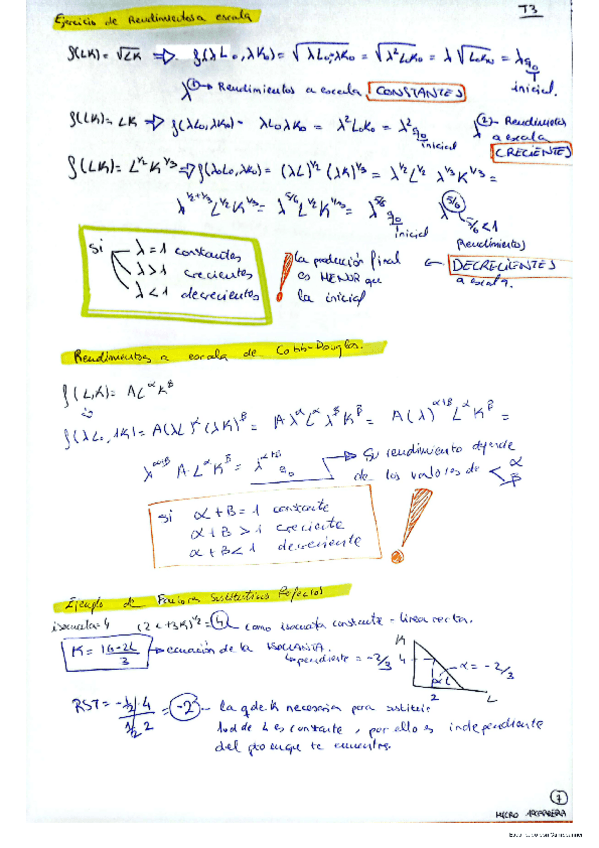 Ejercicio de Rendimientos a escala
T3
f(LK) = √LK ⇒ f(λL₀, λK₀) = √λL₀·λK₀ = √λ²L₀K₀ = λ√L₀K₀ = λq₀
inicial.
λ① → Rendimientos a escala CONSTANTES
f(LK) = LK ⇒ f(λL₀, λK₀) = λL₀λK₀ = λ²L₀K₀ = λ²q₀
inicial
λ② - Rendimientos
a escala
CRECIENTES
f(LK) = L^1/2 K^1/3 ⇒ f(λL₀, λK₀) = (λL)^1/2 (λK)^1/3 = λ^1/2 L^1/2 λ^1/3 K^1/3 =
λ^1/2+1/3 L^1/2 K^1/3 = λ^5/6 L^1/2 K^1/3 = λ^5/6 q₀
inicial
λ^5/6
5/6 < 1
Rendimientos
DECRECIENTES
a escala.
si
λ = 1 constantes
λ > 1 crecientes
λ < 1 decrecientes
! La producción final
es MENOR que
la inicial
Rendimientos a escala de Cobb-Douglas.
f(L,K) = AL^α K^β
f(λL, λK) = A(λL)^α (λK)^β = Aλ^α L^α λ^β K^β = A(λ)^α+β L^α K^β =
λ^α+β A·L^α K^β = λ^α+β q₀
Su rendimiento depende
de los valores de < α
β
si α + β = 1 constante
α + β > 1 creciente
α + β < 1 decreciente
!
Ejemplo de Factores Sustitutivos Perfectos
isocuanta = 4 (2L+3K)^1/2 = 4 como isocuanta constante - linea recta.
K = 16-2L / 3 → ecuación de la ISOCUANTA.
pendiente = -2/3
K
4
α = -2/3
2
L
RST = -1/2·4 / 1/2 2 = -2 - la q de K necesaria para sustituir
1 ud de L es constante, por ello es independiente
del pto en que te encuentres.
7
MICRO